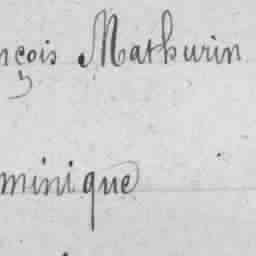 nçois Mathurin
minique